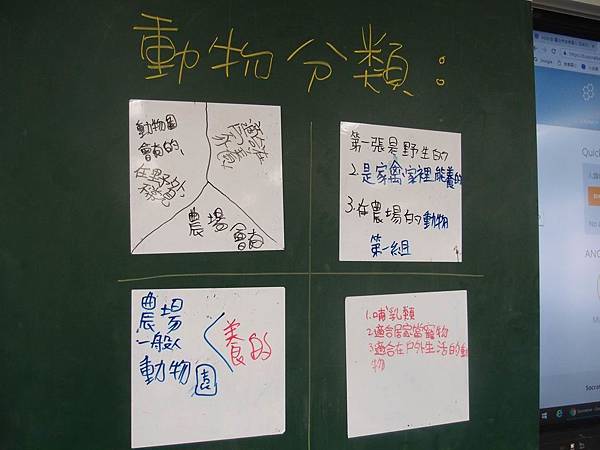 動物分類：
動物園
會有的、
在野外
農場
會有
第一張是野生的
2.是家禽家裡能養的
3.在農場的動物
第一組
農場
一般人
動物園
養的
1.哺乳類
2.適合居家當寵物
3適合在戶外生活的動
物
Quick